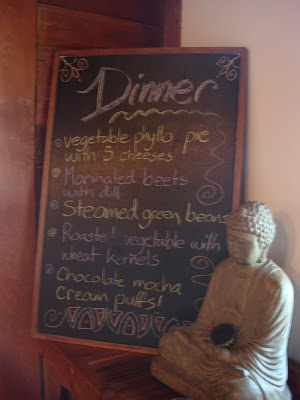 Dinner
vegetable phyllo pie
with 5 cheeses
Marinated beets
with dill
Steamed green beans
Roasted vegetable with
wheat kernels
Chocolate mocha
Cream puffs!